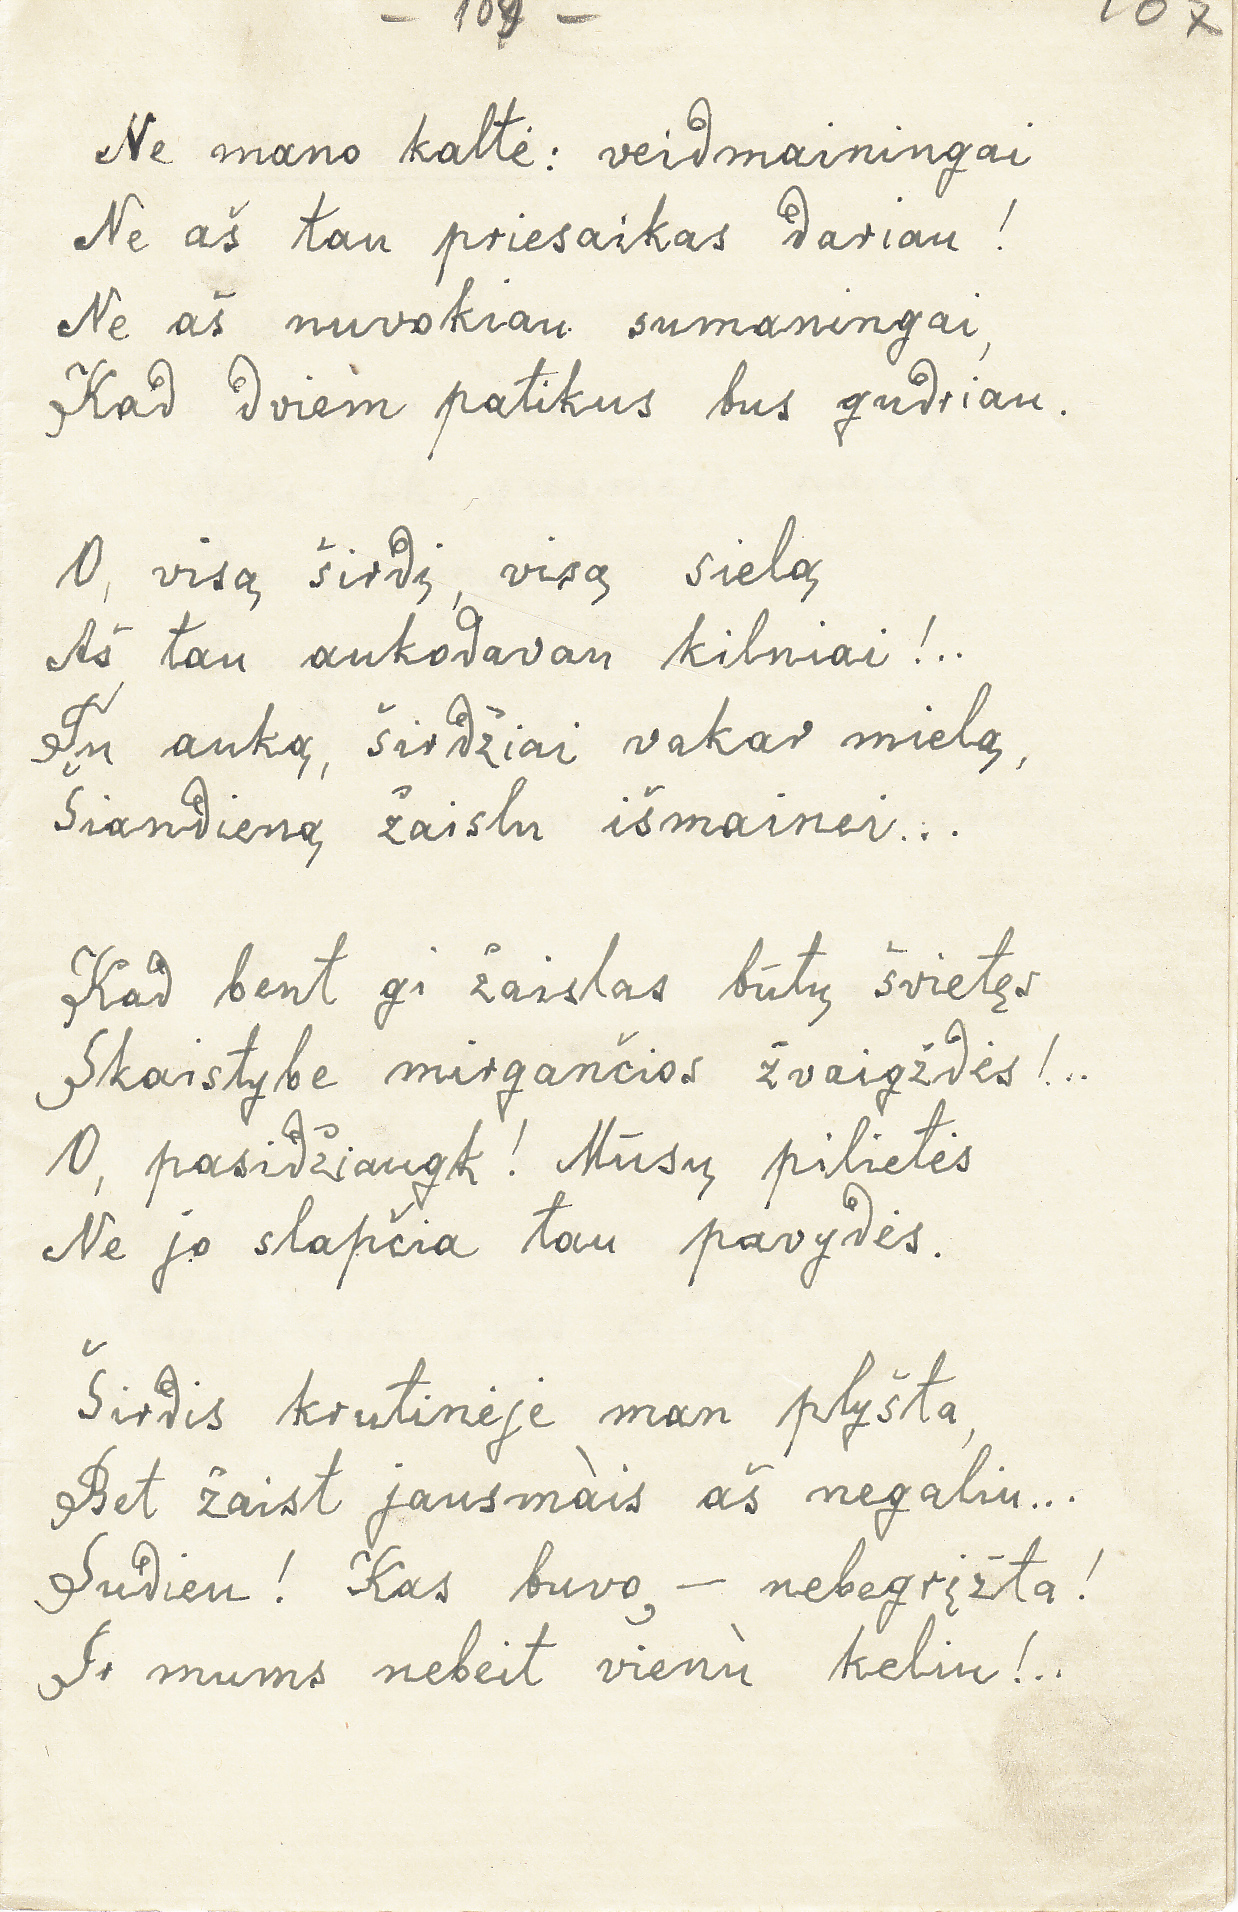 107
Ne mano kaltė: veidmainingai
Ne aš tau priesaikas dariau!
Ne aš nuvokiau sumaningai,
Kad dviem patikus bus gudriau.
O, visą širdį, visą sielą
Aš tau aukodavau kilniai!..
Tu auką, širdžiai vakar mielą,
Šiandieną žaislu išmainei...
Kad bent gi žaislas būtų švietęs
Skaistybe mirgančios žvaigždės!...
O, pasidžiaugk! Mūsų pilietės
Ne jo slapčia tau pavydės.
Širdis krutinėje man plyšta,
Bet žaist jausmàis aš negaliu...
Sudieu! Kas buvo, — nebegrįžta!
Ir mums nebeit vienù keliu!..